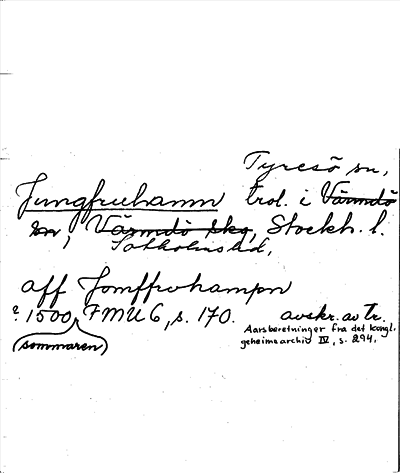 Tyresö sn,
Jungfruhamn trol. i Värmdö
sn, Värmdö skg, Stockh. l.
Sotholms hd,
aff Jomffrvhampn
? 1500 FMU 6, s. 170. avskr. av Tr.
(sommaren)
Aarsberetninger fra det kongl.
geheimearchiv IV, s. 294.